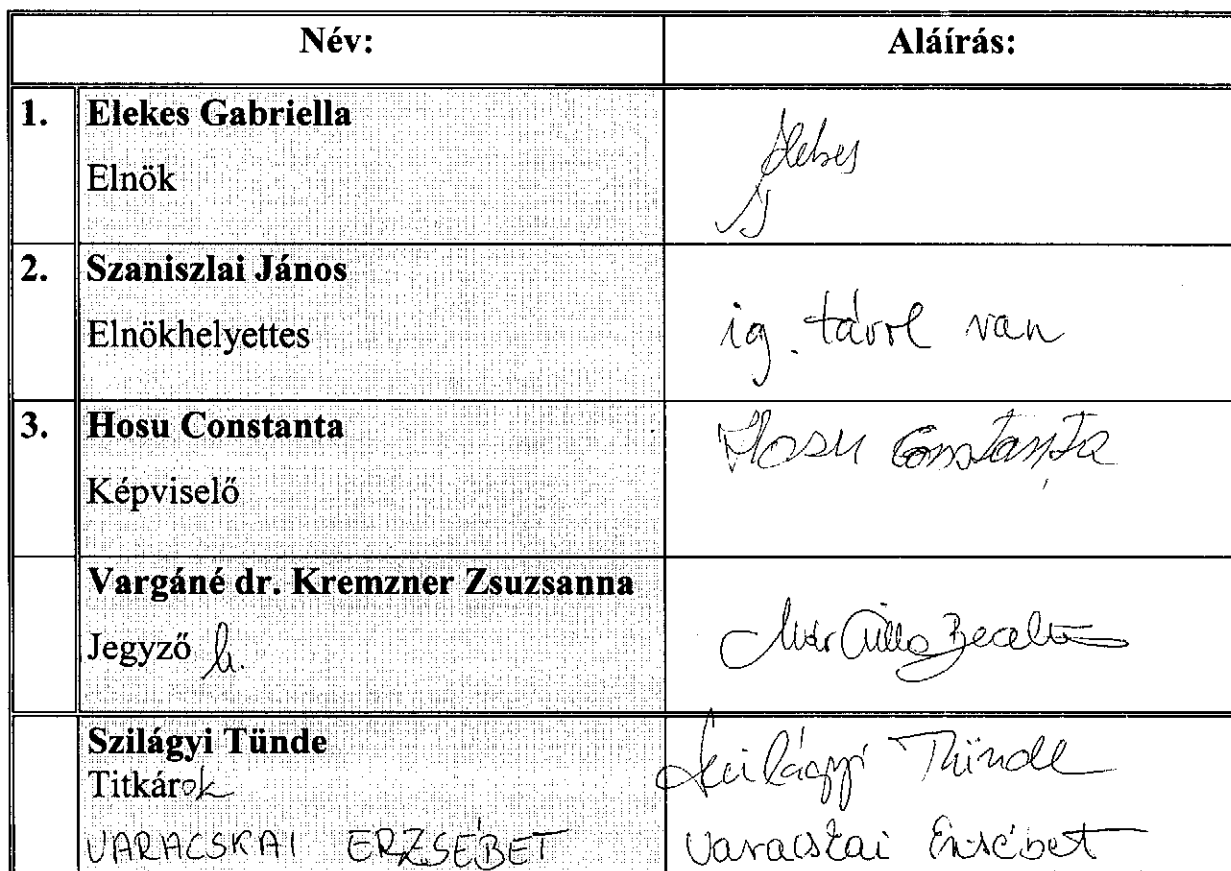 Név: Aláírás:
1. Elekes Gabriella
Elnök
Elekes
2. Szaniszlai János
Elnökhelyettes
ig. távol van
3. Hosu Constanta
Képviselő
Hosu Constanța
Vargáné dr. Kremzner Zsuzsanna
Jegyző h.
Szilágyi Tünde
Titkárok
VARACSKAI ERZSÉBET
Szilágyi Tünde
Varacskai Erzsébet